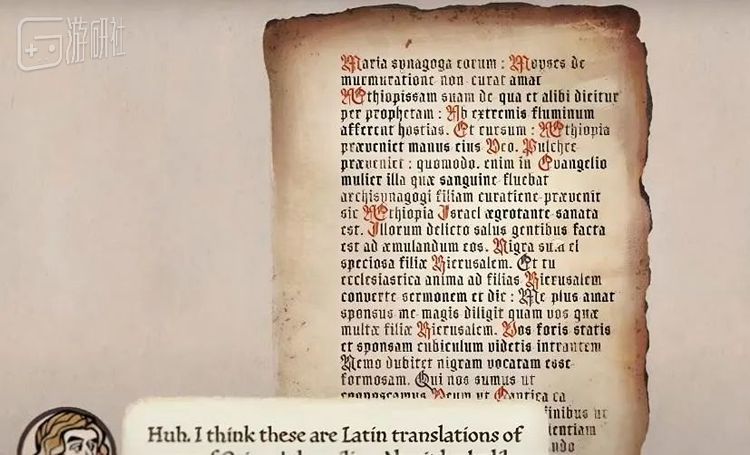 游研社
Maria synagoga eorum : Moyses de
murmuratione non curat amat
AEthiopissam suam de qua et alibi dicitur
per prophetam : Ab extremis fluminum
afferent hostias. Et rursum : AEthiopia
præveniet manus eius Deo. Pulchre
præveniet : quomodo. enim in Evangelio
mulier illa quæ sanguine fluebat
archisynagogi filiam curatione prævenit
sic AEthiopia Israel ægrotante sanata
est. Illorum delicto salus gentibus facta
est ad æmulandum eos. Nigra sum et
speciosa filiæ Hierusalem. Et tu
ecclesiastica anima ad filias Hierusalem
converte sermonem et dic : Me plus amat
sponsus me magis diligit quam vos quæ
multæ filiæ Hierusalem. Vos foris statis
et sponsam cubiculum videtis intrantem
Nemo dubitet nigram vocatam esse
formosam. Qui nos sumus ut
cognoscamus Deum ut Cantica ca
finibus ut
ientiam
ndo
Huh. I think these are Latin translations of